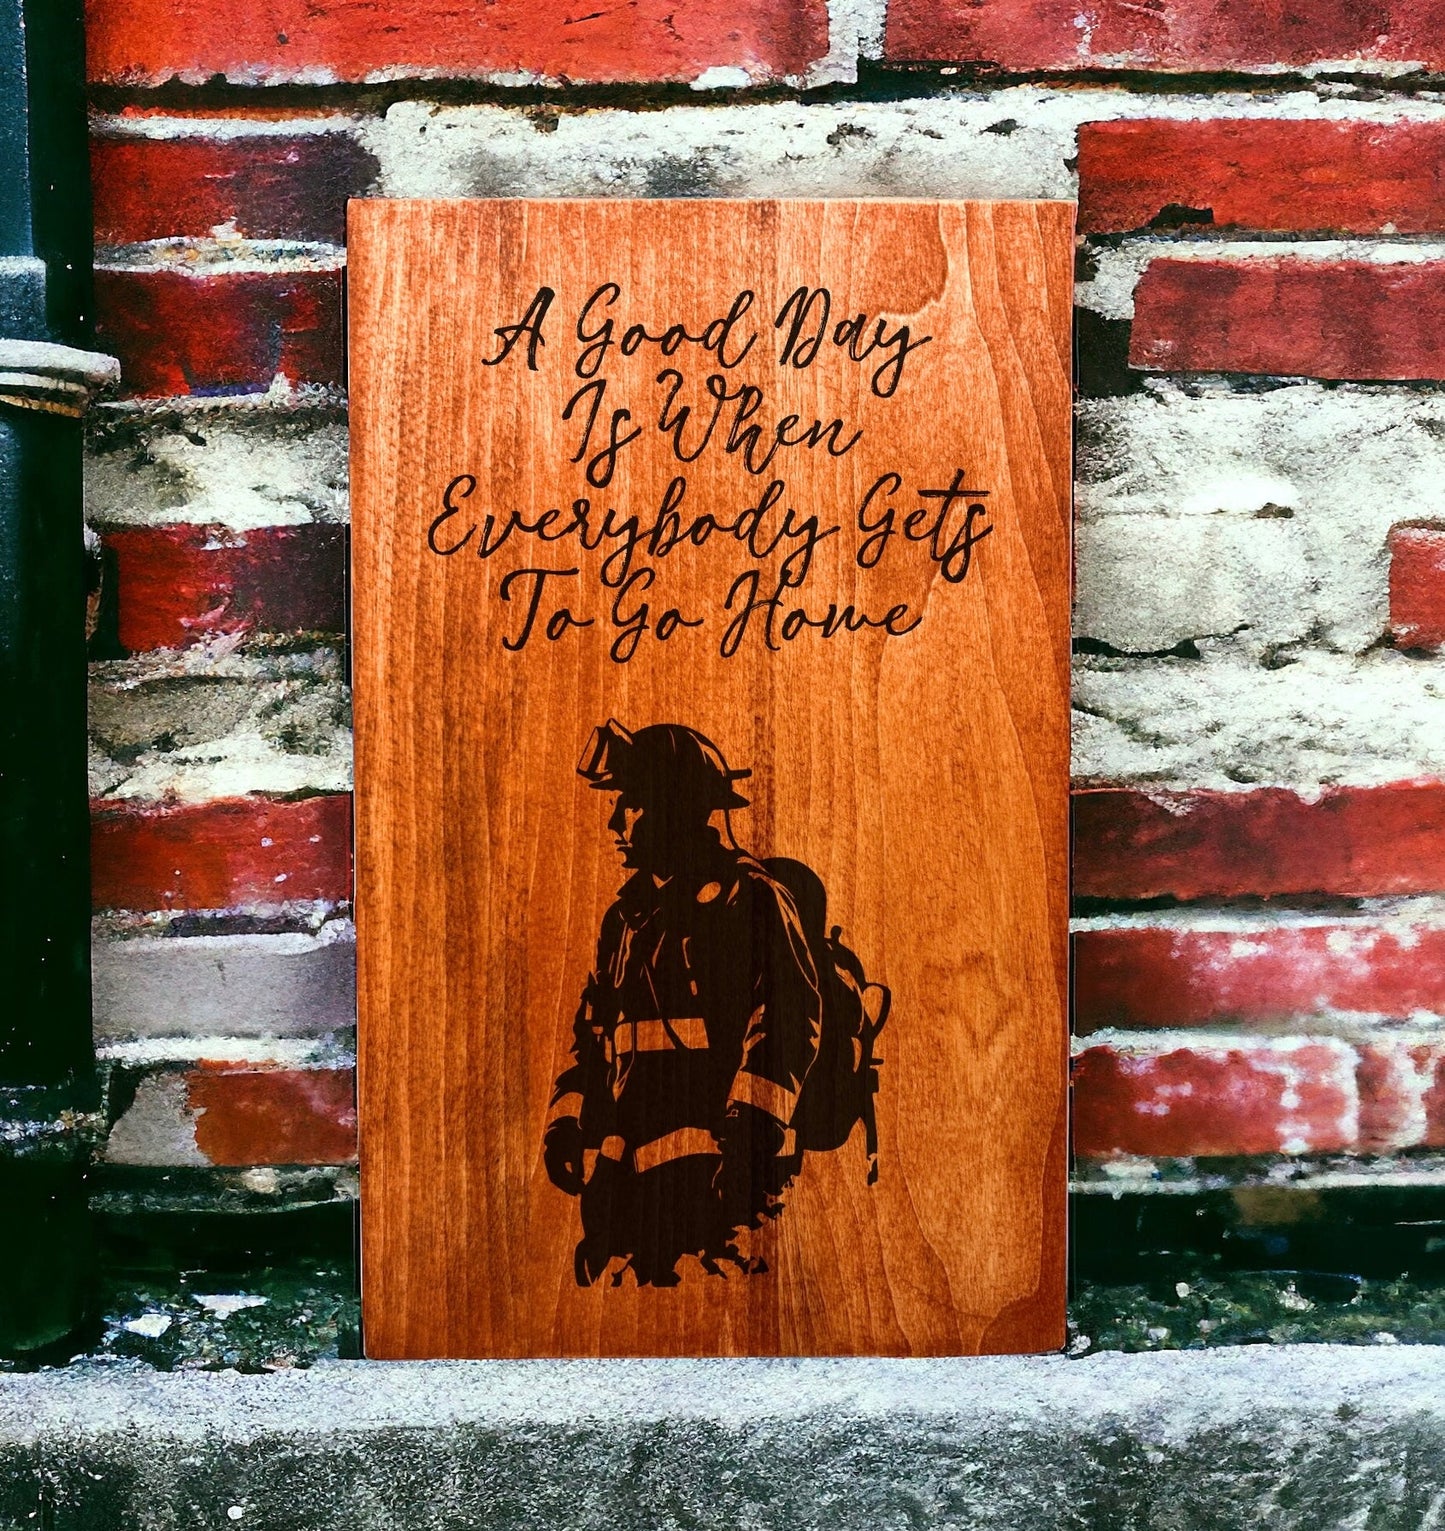 A Good Day
Is When
Everybody Gets
To Go Home